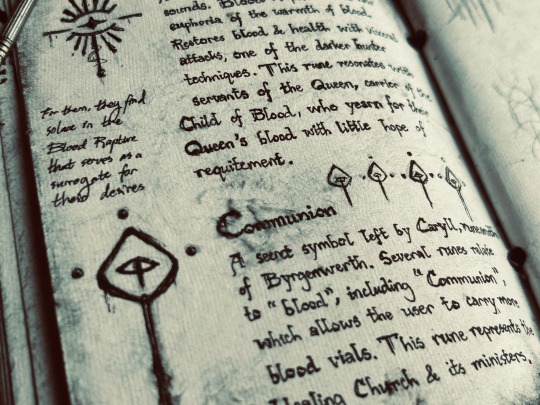 sounds. Blood
euphoria of the warmth of blood.
Restores blood & health with visceral
attacks, one of the darker hunter
techniques. This rune resonates with
servants of the Queen, carrier of the
Child of Blood, who yearn for their
Queen's blood with little hope of
requitement.
For them, they find
solace in the
Blood Rapture
that serves as a
surrogate for
these desires
Communion
A secret symbol left by Caryll, runesmith
of Byrgenwerth. Several runes relate
to "blood", including "Communion",
which allows the user to carry more
blood vials. This rune represents the
Healing Church & its ministers.